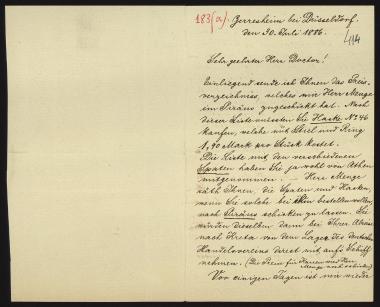 183(a)
Gerresheim bei Düsseldorf.
den 30. Juli 1886.
414
Sehr geehrter Herr Doctor!
Einliegend sende ich Ihnen das Preis-
verzeichniss, welches mir Herr Menge
im Piräus zugeschickt hat. Nach
dieser Liste müssten Sie Hacke No 46
kaufen, welche mit Stiel und Ring
1,90 Mark pro Stück kostet.
Die Liste mit den verschiedenen
Spaten haben Sie ja wohl von Athen
mitgenommen. – Herr Menge
räth Ihnen, die Spaten und Hacken,
wenn Sie solche bei ihm bestellen wollen,
nach Piräus schicken zu lassen. Sie
würden dieselben dann bei Ihrer Abreise
nach Kreta von dem Lager des deutschen
Handelsvereins direct mit aufs Schiff
nehmen. (Die Preise für Karren wird Herr
Menge noch schicken)
Vor einigen Tagen ist mir wieder